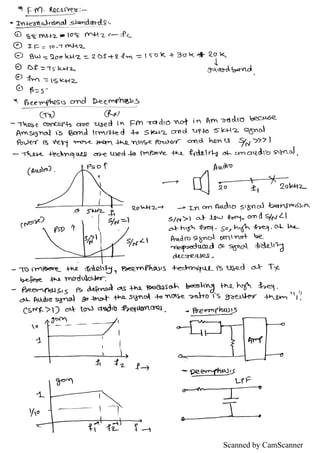 * F.M. Receiver:-
• International standards:-
① 88 MHz - 108 MHz - fc
② IF = 10.7 MHz
③ BW = 200 KHz = 2Δf + 2fm = 150K + 30K + 20K
guard band
④ Δf = 75 KHz
⑤ fm = 15KHz
⑥ β = 5
* Preemphasis and Deemphasis
(Tx) (Rx)
- These concepts are used in FM radio not in Am radio because
Am signal is Band limited to 5KHz and upto 5KHz signal
Power is very more than the noise power and hence S/N >>> 1
- These techniques are used to improve the fidelity of an audio signal.
(Audio) PSD ↑
Audio
20 f1 20KHz
0 5KHz f1 20KHz →
S/N = 1
(Noise) PSD ↑
S/N > 1
S/N < 1
→ In an Audio signal transmission
S/N > 1 at low freq. and S/N < 1
at high freq. so, high freq. of the
Audio signal cannot be
reproduced so signal fidelity
decreases.
- To improve the fidelity, Preemphasis technique is used at Tx
before the modulator.
- Preemphasis is defined as the boosting the high freq.
of Audio signal so that the signal to noise ratio is greater than "1"
(SNR > 1) at low audio frequencies.
gain
10
1
f1 f2 f →
- Preemphasis
Amp
gain
1
1/10
f1 f2 f →
- Deemphasis
LPF
Scanned by CamScanner